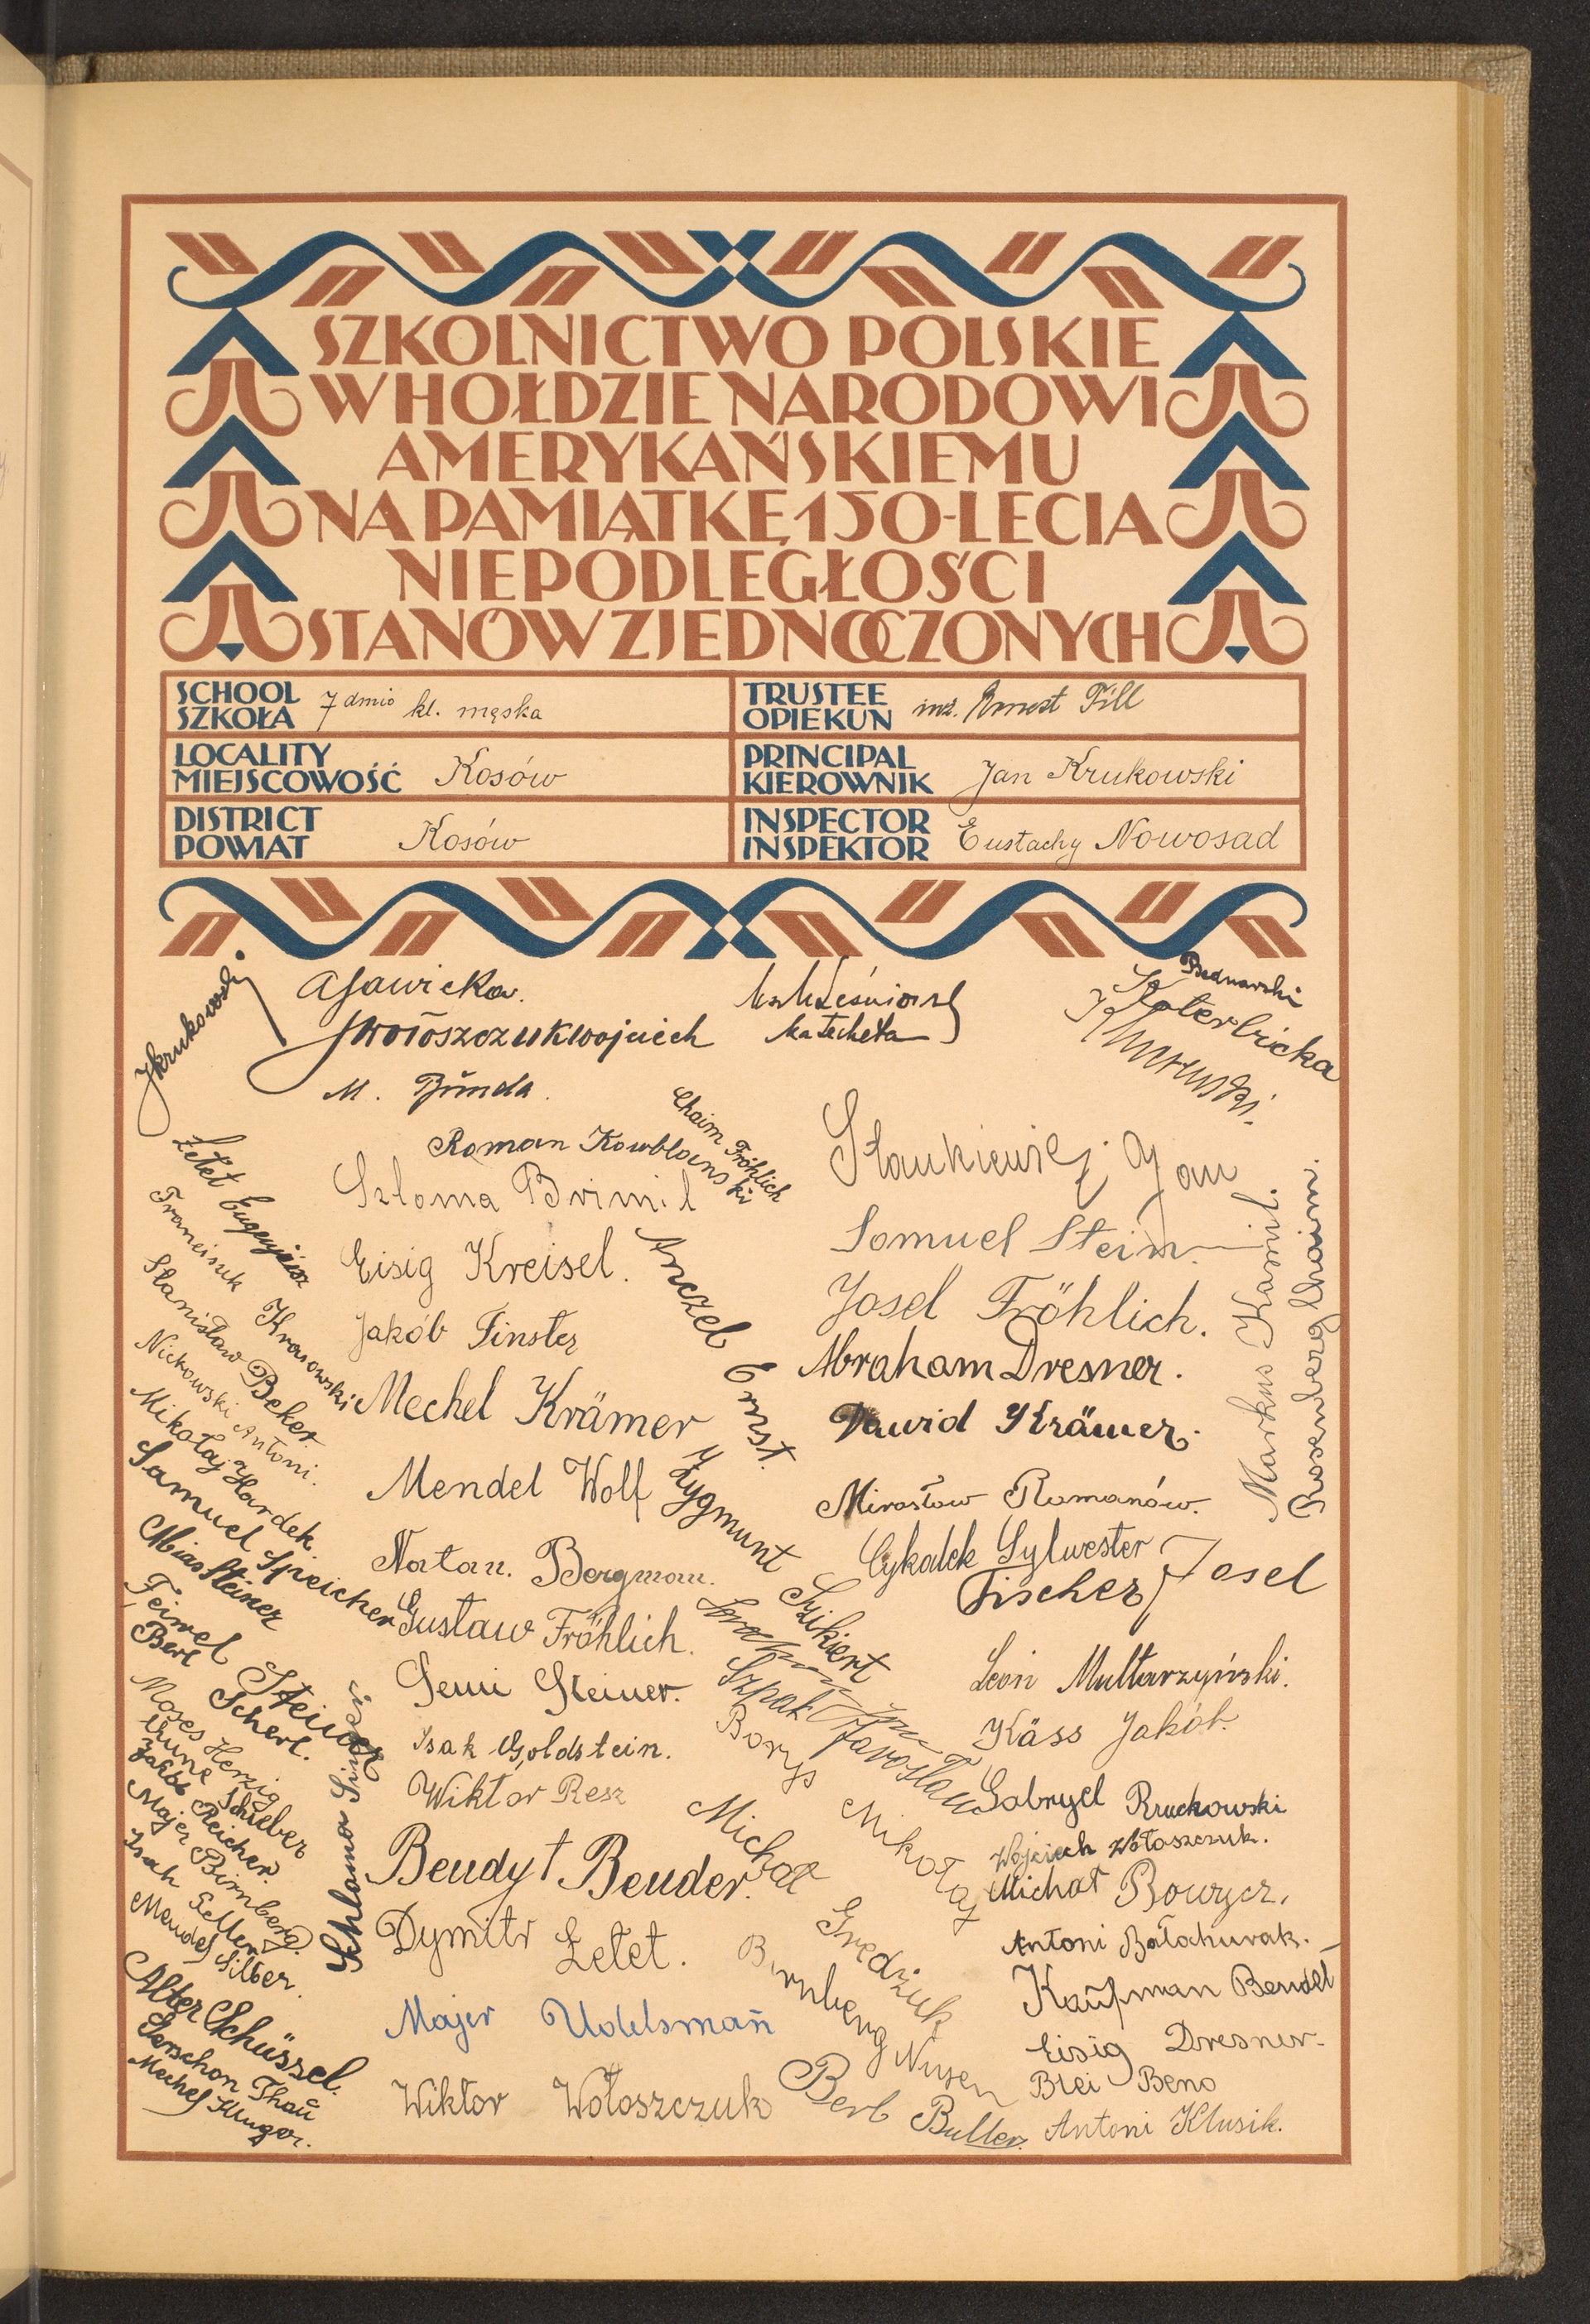 SZKOLNICTWO POLSKIE
W HOŁDZIE NARODOWI
AMERYKAŃSKIEMU
NA PAMIĄTKĘ 150-LECIA
NIEPODLEGŁOŚCI
STANÓW ZJEDNOCZONYCH
SCHOOL
SZKOŁA 7dmio kl. męska
TRUSTEE
OPIEKUN inż. Ernest Till
LOCALITY
MIEJSCOWOŚĆ Kosów
PRINCIPAL
KIEROWNIK Jan Krukowski
DISTRICT
POWIAT Kosów
INSPECTOR
INSPEKTOR Eustachy Nowosad
JKrukowski
ASawicka.
Wołoszczuk Wojciech
M. Bunda.
katecheta
Bednarski
Roman Kowblanski
Chaim Fröhlich
Szloma Brimil
Eisig Kreisel.
Jakób Finster
Mechel Krämer
Mendel Wolf
Natan. Bergman.
Gustaw Fröhlich.
Semi Steiner.
Isak Goldstein.
Wiktor Resz
Bendyt Bender.
Dymitr Łetet.
Majer Udelsman
Wiktor Wołoszczuk
Łetet Eugenjusz
Franciszek Krasowski
Stanisław Beker.
Nickowski Antoni.
Mikołaj Hardek.
Samuel Speicher
Mias Steiner
Feiwel Steiner
Berl Scherl.
Moses Herzig
Chune Schieber
Jakób Reicher.
Majer Birnberg.
Isak Seller
Mendel Silber.
Alter Schüssel.
Gerschon Thau
Mechel Kluger.
Anczel Ernst.
Zygmunt Szikiert
Szpak Jarosław
Borys Mikołaj
Michał Gredżuk
Birnberg Nusen
Berl Buller.
Stankiewicz Jan
Somuel Stein.
Josel Fröhlich.
Abraham Dresner.
Dawid Krämer.
Mirosław Romanów.
Cykalek Sylwester
Fischer Josel
Leon Multarzyński.
Käss Jakób.
Gabryel Rruckowski
Wojciech Wołoszczuk.
Michał Bowycz.
Antoni Bałahurak.
Kaufman Bendet
Eisig Dresner
Blei Beno
Antoni Klusik.
Markus Kamil.
Rosenberg Chaim.